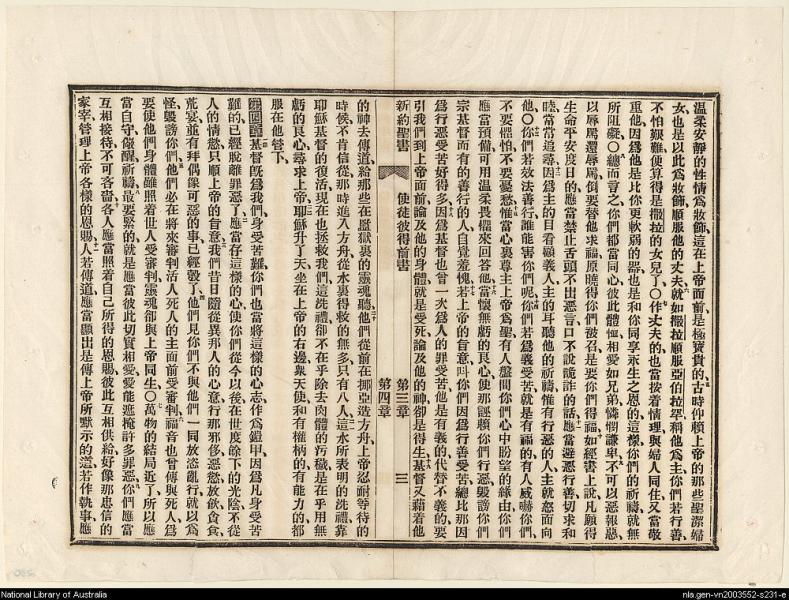 溫柔安靜的性情爲妝飾這在上帝面前是極寶貴的古時仰賴上帝的那些聖潔婦
女也是以此爲妝飾順服他的丈夫就如撒拉順服亞伯拉罕稱他爲主你們若行善
不怕艱難便算得是撒拉的女兒了〇作丈夫的也當按着情理與婦人同住又當敬
重他因爲他是比你更軟弱的器也是和你同享永生之恩的這樣你們的祈禱就無
所阻礙〇總而言之你們都當同心彼此體恤相愛如兄弟憐憫謙卑不可以惡報惡
以辱罵還辱罵倒要替他求福原曉得你們被召是要你們得福如經書上說凡願得
生命平安度日的應當禁止舌頭不出惡言口不說詭詐的話應當避惡行善切求和
睦常常追尋因爲主的目看顧義人主的耳聽他的祈禱惟有行惡的人主就怒面向
他〇你們若效法善行誰能害你們呢你們若爲義受苦就是有福的有人威嚇你們
不要懼怕不要憂愁惟當心裏尊主上帝爲聖有人盤問你們心中盼望的緣由你們
應當預備可用溫柔畏懼來回答他當懷無虧的良心使那誣賴你們行惡毀謗你們
宗基督而有的善行的人自覺羞愧若上帝的旨意叫你們因爲行善受苦總比那因
爲行惡受苦好得多因爲基督也曾一次爲人的罪受苦他是有義的代替不義的要
引我們到上帝面前論及他的身體就是受死論及他的神卻是得生基督又藉着他
新約聖書 使徒彼得前書 第三章 第四章 三
的神去傳道給那些在監獄裏的靈魂聽他們從前在挪亞造方舟上帝忍耐等待的
時候不肯信從那時進入方舟從水裏得救的無多只有八人這水所表明的洗禮靠
耶穌基督的復活現在也拯救我們這洗禮卻不在乎除去肉體的污穢是在乎用無
虧的良心尋求上帝耶穌升了天坐在上帝的右邊衆天使和有權柄的有能力的都
服在他管下
第四章基督旣爲我們身受苦難你們也當將這樣的心志作爲鎧甲因爲凡身受苦
難的已經脫離罪惡了應當存這樣的心使你們從今以後在世度餘下的光陰不從
人的情慾只順上帝的旨意我們昔日隨從異邦人的心意行那邪侈惡慾放飲貪食
荒宴並有拜偶像可惡的事已經彀了他們見你們不與他們一同放恣亂行就以爲
怪毀謗你們他們必在將來審判活人死人的主面前受審判福音也曾傳與死人爲
要使他們身體雖照着世人受審判靈魂卻與上帝同生〇萬物的結局近了所以應
當自守儆醒祈禱最要緊的就是應當彼此切實相愛愛能遮掩許多罪惡你們應當
互相接待不可吝嗇各人應當照着自己所得的恩賜彼此互相供給好像那忠信的
家宰管理上帝各樣的恩賜人若傳道應當顯出是傳上帝所默示的道若作執事應
National Library of Australia
nla.gen-vn2003552-s231-e